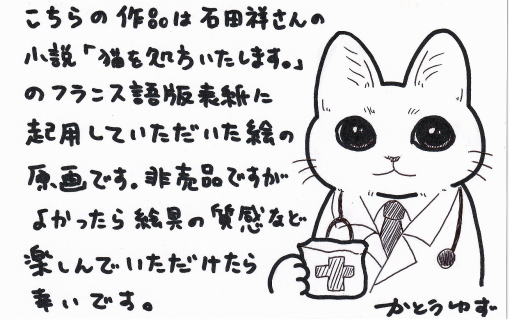 こちらの作品は石田祥さんの
小説「猫を処方いたします。」
のフランス語版表紙に
起用していただいた絵の
原画です。非売品ですが
よかったら絵具の質感など
楽しんでいただけたら
幸いです。
かとうゆず